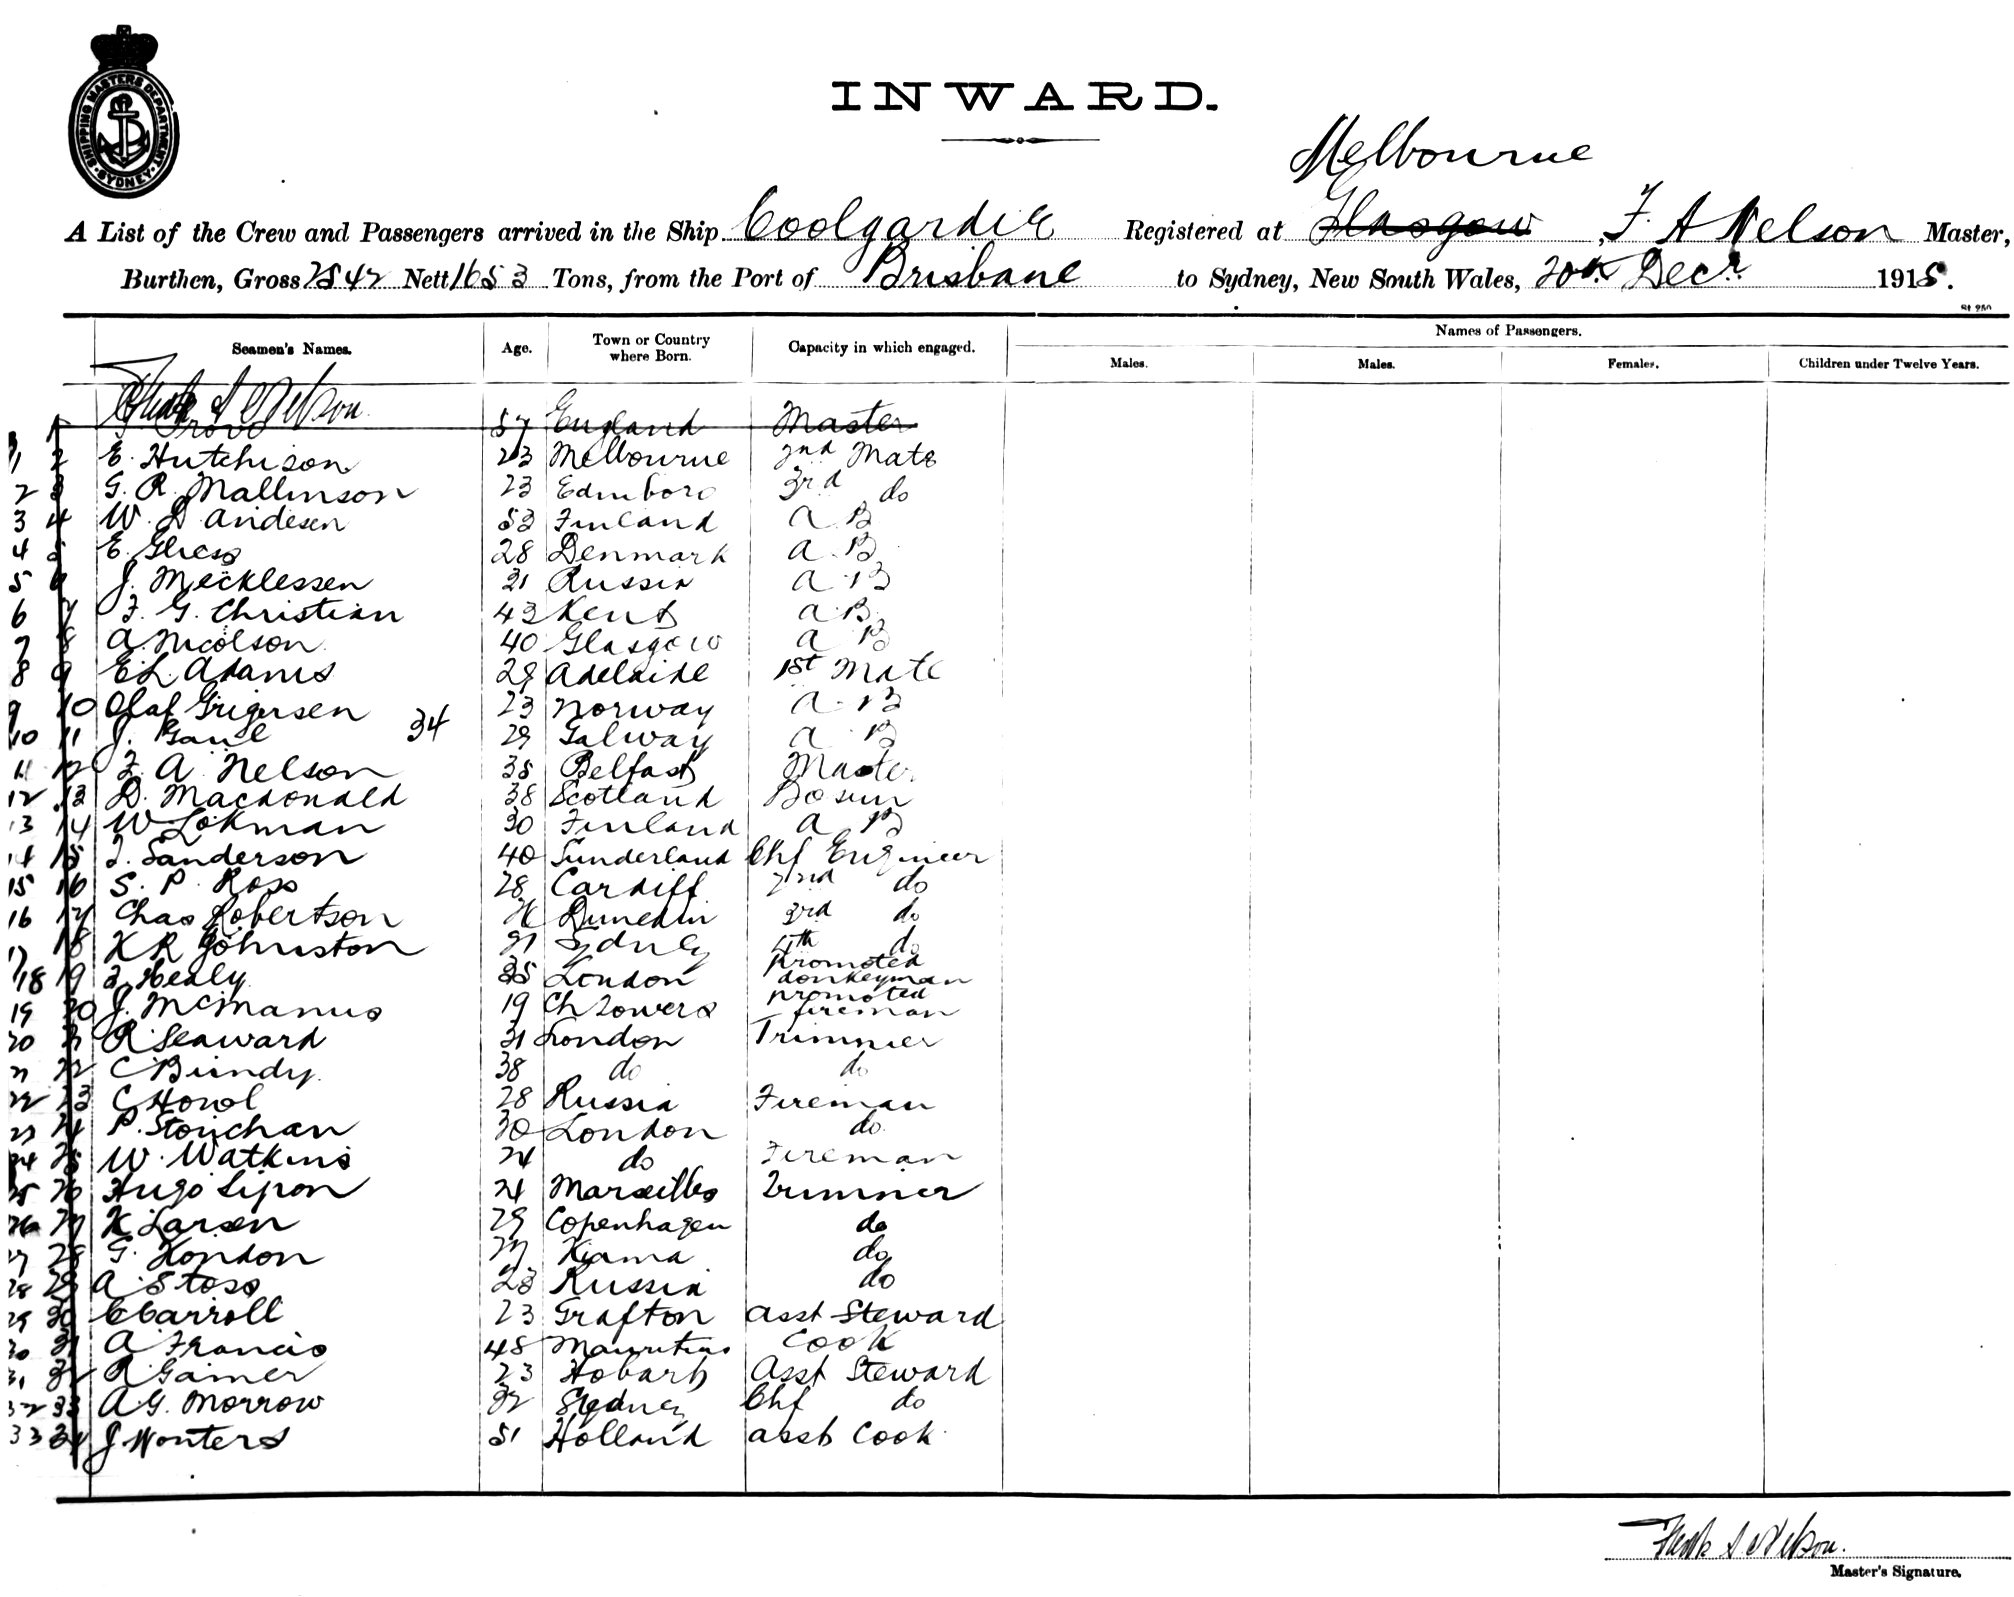 SHIPPING MASTERS DEPARTMENT
SYDNEY
INWARD.
Melbourne
A List of the Crew and Passengers arrived in the Ship Coolgardie Registered at Glasgow, F. A Nelson Master,
Burthen, Gross 2542 Nett 1653 Tons, from the Port of Brisbane to Sydney, New South Wales, 20th Decr 1915.
Names of Passengers.
Seamen's Names. Age. Town or Country where Born. Capacity in which engaged. Males. Males. Females. Children under Twelve Years.
Frank A Nelson
1 57 England Master
1 2 E. Hutchison 23 Melbourne 2nd Mate
2 3 G. R. Mallinson 23 Edinboro 3rd do
3 4 W. D. Andesen 53 Finland A B
4 5 E. 28 Denmark A B
5 6 J. Mecklessen 31 Russia A B
6 7 F. G. Christian 43 Kent A B
7 8 A. Nicolson 40 Glasgow A B
8 9 E L Adams 29 Adelaide 1st Mate
9 10 Olaf Grigersen 23 Norway A B
10 11 J. Gaul 34 29 Galway A B
11 12 F. A Nelson 35 Belfast Master
12 13 D. Macdonald 38 Scotland Bosun
13 14 W Lökman 30 Finland A B
14 15 T. Sanderson 40 Sunderland Chf Engineer
15 16 S. P. Ross 28 Cardiff 2nd do
16 17 Chas Robertson 26 Dunedin 3rd do
17 18 K R Johnston 21 Sydney 4th do
18 19 T. Healy 35 London promoted donkeyman
19 20 J. McManus 19 Ch Towers promoted fireman
20 21 R Seaward 31 London Trimmer
21 22 C Bundy. 38 do do
22 23 C 28 Russia Fireman
23 24 P. 30 London do
24 25 W. Watkins 24 do Fireman
25 26 Hugo Sipon 24 Marseilles Trimmer
26 27 K Larsen 29 Copenhagen do
27 28 G. London 27 Kiama do
28 29 A Stoss 23 Russia do
29 30 C Carroll 23 Grafton Asst Steward
30 31 A Francis 48 Mauritius Cook
31 32 R Gamer 23 Hobart Asst Steward
32 33 A. G. Morrow 32 Sydney Chf do
33 34 J Wouters 51 Holland Asst Cook
Frank A. Nelson.
Master's Signature.